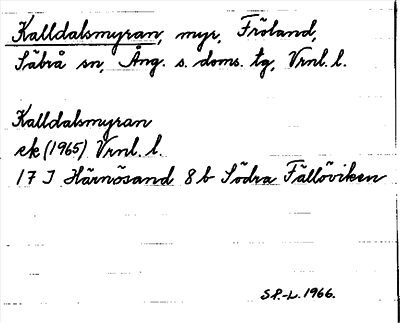 Kalldalsmyran, myr, Fröland,
Säbrå sn, Ång. s. doms. tg, Vrnl. l.
Kalldalsmyran
ek (1965) Vrnl. l.
17 I Härnösand 8 b Södra Fällöviken
S.P.-L. 1966.